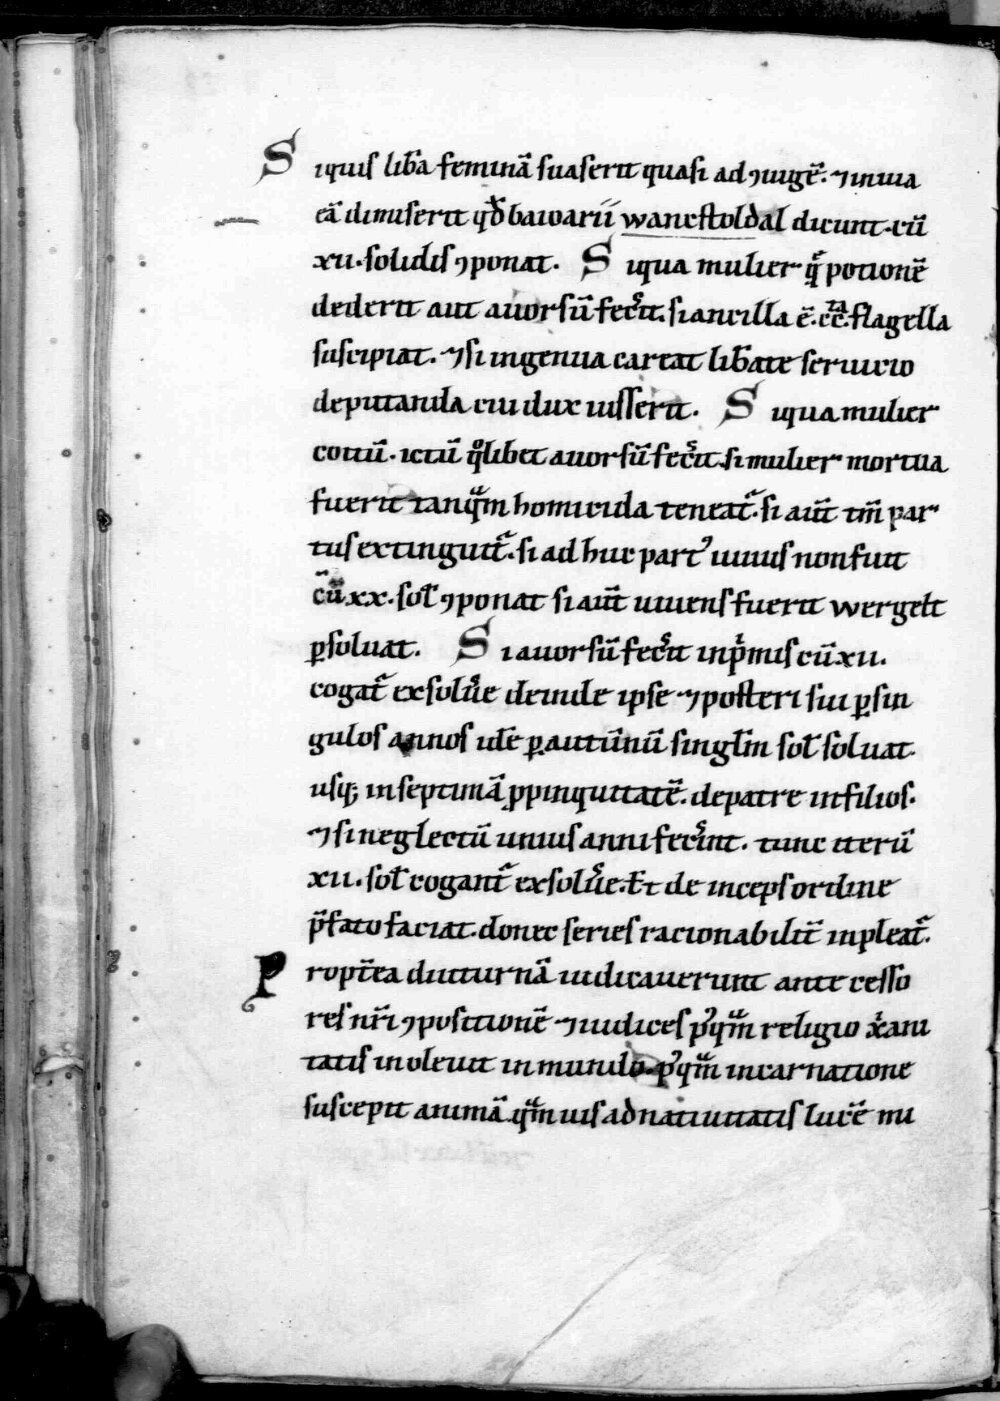 Siquis lib̄a feminā suaserit quasi ad ꝯiugē. ⁊ inuia
eā dimiserit qđ baiuuarii wancstoldal dicunt. cū
xii. solidis ꝯponat. Siqua mulier q̄ potionē
dederit aut auorsū fec̄it. si ancilla ē. cc̄. flagella
suscipiat. ⁊ si ingenua careat lib̄tate seruicio
deputanda cui dux iusserit. Siqua mulier
cottū. ictū q̊libet auorsū fec̄it. si mulier mortua
fuerit tanqᷓm homicida teneat᷑. si aūt tm̄ par
tus extinguit᷑. si adhuc partꝰ uiuus non fuit
cū xx. sol̄ ꝯponat si aūt uiuens fuerit wergelt
ꝑsoluat. Si auorsū fec̄it inpͥmis cū xii.
cogat᷑ exsolūe deinde ipse ⁊ posteri sui ꝑ sin
gulos annos id̄e ꝑ autūnū singlm̄ sol̄ soluat
usq; in septimā ꝓpinquitatē. de patre in filios.
⁊ si neglectū unius anni fec̄int. tunc iterū
xii. sol̄ cogant᷑ exsolūe. Et deinceps ordine
p̄fato faciat. donec series racionabilit̄ inpleat᷑.
Propt̄ea diuturnā iudicauerunt antecesso
res nr̄i ꝯpositionē ⁊ iudices pꝰqᷓm religio xp̄iani
tatis inoleuit in mundo. pꝰqᷓm incarnatione
suscepit animā. qᷓmuis ad natiuitatis lucē mi